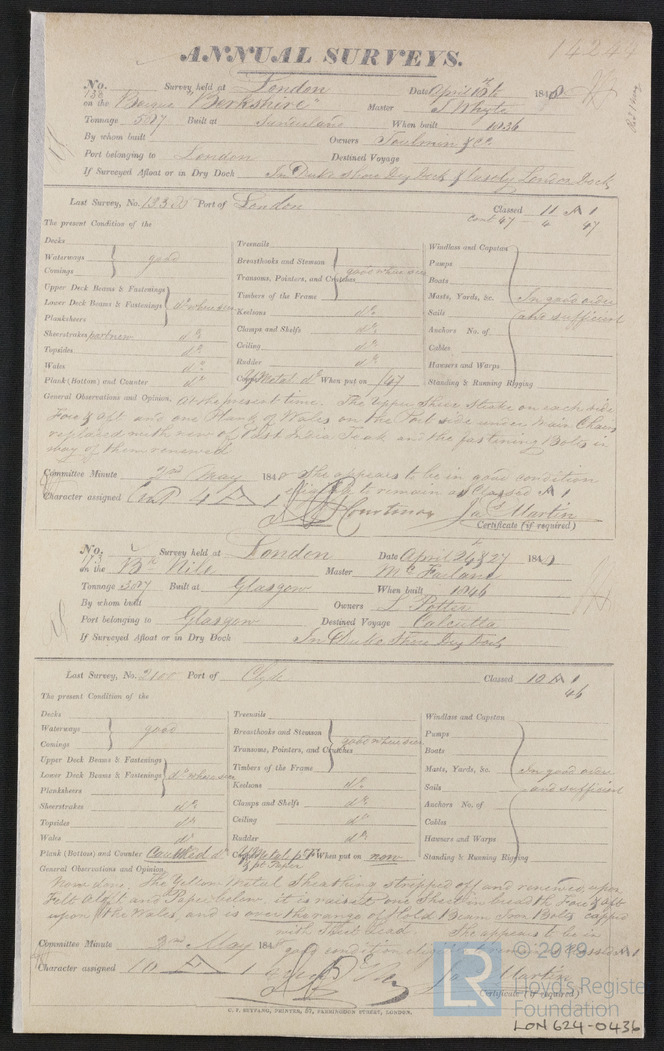 14244
ANNUAL SURVEYS.
No. 138 Survey held at London Date April 1848
on the Barque "Berkshire" Master J Whyte
Tonnage 5 7 Built at Sunderland When built 1836
By whom built Owners Toulmin & Co
Port belonging to London Destined Voyage
If Surveyed Afloat or in Dry Dock In Duke Shore Dry Dock & lastly London Dock
Last Survey, No. Port of London Classed 11 A 1
cont 47 - 4 47
The present Condition of the
Decks
Waterways good
Comings
Upper Deck Beams & Fastenings
Lower Deck Beams & Fastenings do where seen
Planksheers
Sheerstrakes part new do
Topsides do
Wales do
Plank (Bottom) and Counter do
Treenails
Breasthooks and Stemson good where seen
Transoms, Pointers, and Crutches
Timbers of the Frame
Keelsons do
Clamps and Shelfs do
Ceiling do
Rudder do
Metal do When put on /47
Windlass and Capstan
Pumps
Boats
Masts, Yards, &c. In good order
Sails and sufficient
Anchors No. of
Cables
Hawsers and Warps
Standing & Running Rigging
General Observations and Opinion, At the present time. The Upper Sheer Strake on each side
Fore & Aft and one Plank of Wales on the Port side under Main Chains
replaced with new of East India Teak and the fastening Bolts in
way of them renewed
Committee Minute 2nd May 1848 She appears to be in good condition
eligible to remain as Classed A 1
Character assigned Cont 4 A 1 Courtenay Jas Martin
Certificate (if required)
No. 173 Survey held at London Date April 24 & 27 184
on the Bn Nile Master McFarland
Tonnage 327 Built at Glasgow When built 1846
By whom built Owners L Potter
Port belonging to Glasgow Destined Voyage Calcutta
If Surveyed Afloat or in Dry Dock In Duke Shore Dry Dock
Last Survey, No. 2100 Port of Clyde Classed 10 A 1
46
The present Condition of the
Decks
Waterways good
Comings
Upper Deck Beams & Fastenings
Lower Deck Beams & Fastenings do where seen
Planksheers
Sheerstrakes do
Topsides do
Wales do
Plank (Bottom) and Counter Caulked do
Treenails
Breasthooks and Stemson good where seen
Transoms, Pointers, and Crutches
Timbers of the Frame
Keelsons do
Clamps and Shelfs do
Ceiling do
Rudder do
Y Metal pt F When put on now
& pt Paper
Windlass and Capstan
Pumps
Boats
Masts, Yards, &c. In good order
Sails and sufficient
Anchors No. of
Cables
Hawsers and Warps
Standing & Running Rigging
General Observations and Opinion,
Now done. The Yellow Metal Sheathing stripped off and renewed, upon
Felt Aloft and Paper below, it is raised one Sheet in breadth Fore & Aft
upon the Wales, and is over the range of Hold Beam Iron Bolts capped
with Sheet Lead. She appears to be in
Committee Minute 2nd May 184 good condition eligible to remain as Classed A 1
Character assigned 10 A 1 Jas Martin
Certificate (if required)
C. F. SEYFANG, PRINTER, 57, FARRINGDON STREET, LONDON.
LR
© 2019
Lloyd's Register
Foundation
LON 624-0436